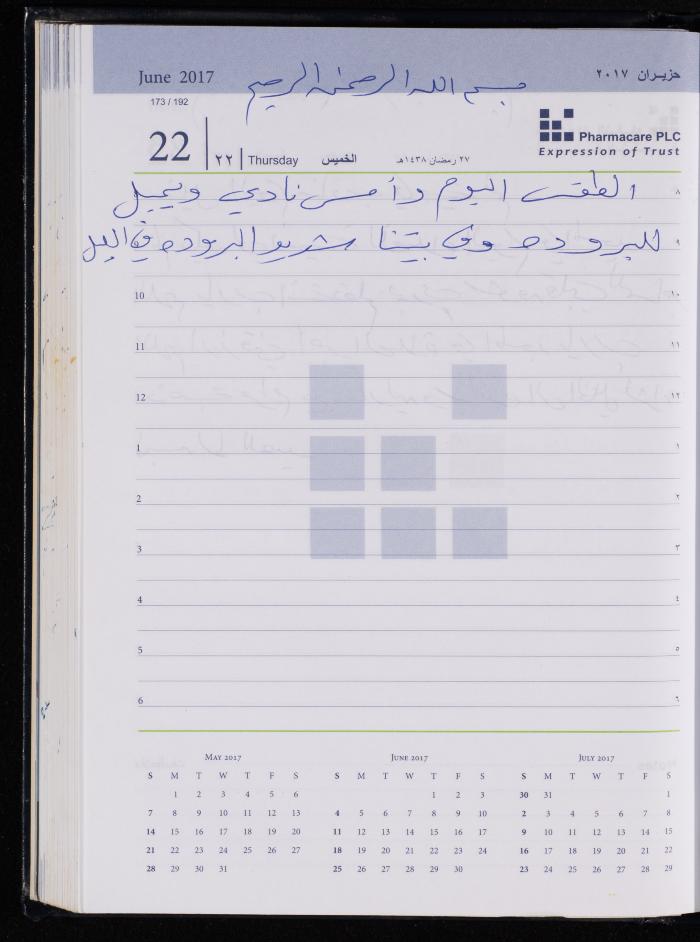 June 2017
حزيران ٢٠١٧
بسم الله الرحمن الرحيم
173 / 192
22 ٢٢ Thursday الخميس ٢٧ رمضان ١٤٣٨هـ
Pharmacare PLC
Expression of Trust
الطقس اليوم وأمس نادي ويميل
٨
للبروده وفي بيتنا شديد البروده في اليل
٩
10 ١٠
11 ١١
12 ١٢
1 ١
2 ٢
3 ٣
4 ٤
5 ٥
6 ٦
MAY 2017
S M T W T F S
1 2 3 4 5 6
7 8 9 10 11 12 13
14 15 16 17 18 19 20
21 22 23 24 25 26 27
28 29 30 31
JUNE 2017
S M T W T F S
1 2 3
4 5 6 7 8 9 10
11 12 13 14 15 16 17
18 19 20 21 22 23 24
25 26 27 28 29 30
JULY 2017
S M T W T F S
30 31 1
2 3 4 5 6 7 8
9 10 11 12 13 14 15
16 17 18 19 20 21 22
23 24 25 26 27 28 29